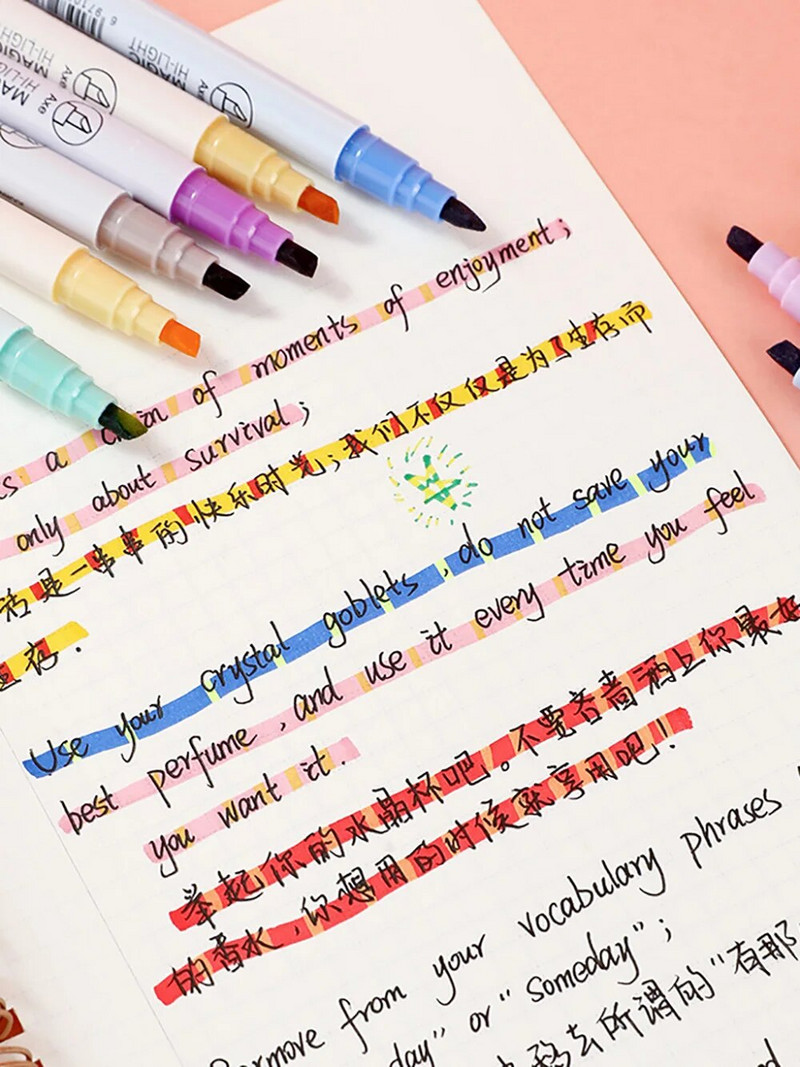 MAGIC
HI-LIGHT
Axe
MAGIC
HI-LIGHT
Axe
MAGIC
HI-LIGHT
Axe
a chain of moments of enjoyment;
only about survival;
活是一串串的快乐时光;我们不仅仅是为了生存而
存.
Use your crystal goblets, do not save your
best perfume, and use it every time you feel
you want it.
举起你的水晶杯吧。不要吝啬洒上你最好
的香水,你想用的时候就享用吧!
from your vocabulary phrases
day" or "someday";
移去所谓的"有那